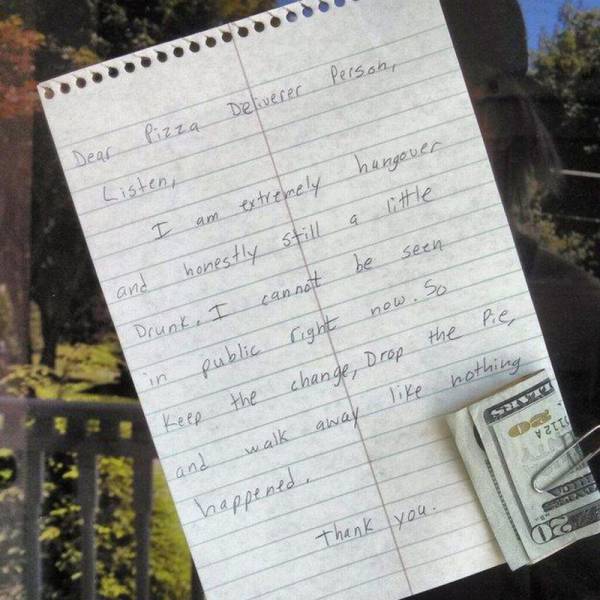 Dear Pizza Deliverer Person,
Listen,
I am extremely hungover
and honestly still a little
Drunk. I cannot be seen
in public right now. So
Keep the change, Drop the Pie,
and walk away like nothing
happened.
Thank you.
20